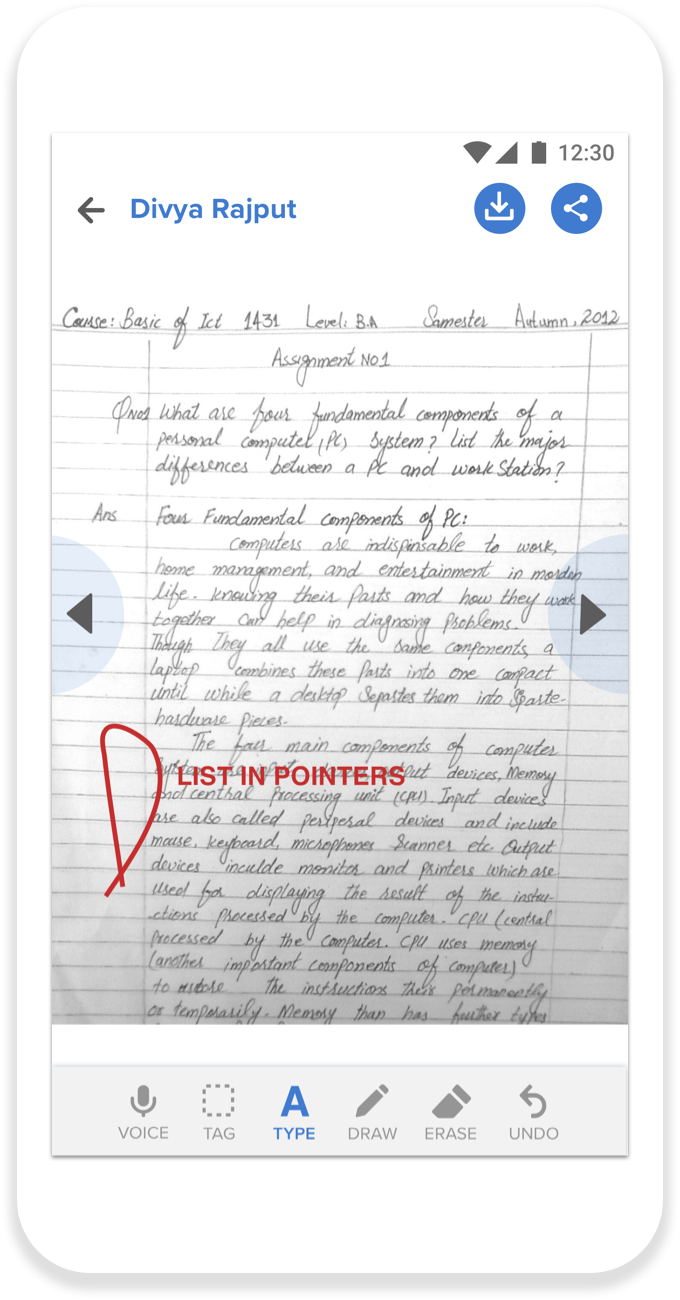 12:30
Divya Rajput
Course: Basic of Ict 1431 Level: B.A Samester Autumn, 2012
Assignment No1
QNo1 What are four fundamental components of a
personal computer (PC) system? List the major
differences between a PC and work Station?
Ans Four Fundamental components of PC:
Computers are indispinsable to work,
home management, and entertainment in morden
life. knowing their Parts and how they work
together can help in diagnosing problems.
Though They all use the same components, a
laptop combines these Parts into one compact
until while a desktop Sepastes them into Sparte-
hardware pieces.
The four main components of computer
LIST IN POINTERS
devices, Memory
and central Processing unit (CPU). Input devices
are also called peripesal devices and include
mouse, keyboard, microphones Scanner etc. Output
devices inculde monitor and printers which are
used for displaying the result of the instru-
ctions processed by the computer. CPU (central
Processed by the computer. CPU uses memory
(another important components of computer)
to the instructions their permanently
or temporarily. Memory than has further types
VOICE TAG TYPE DRAW ERASE UNDO